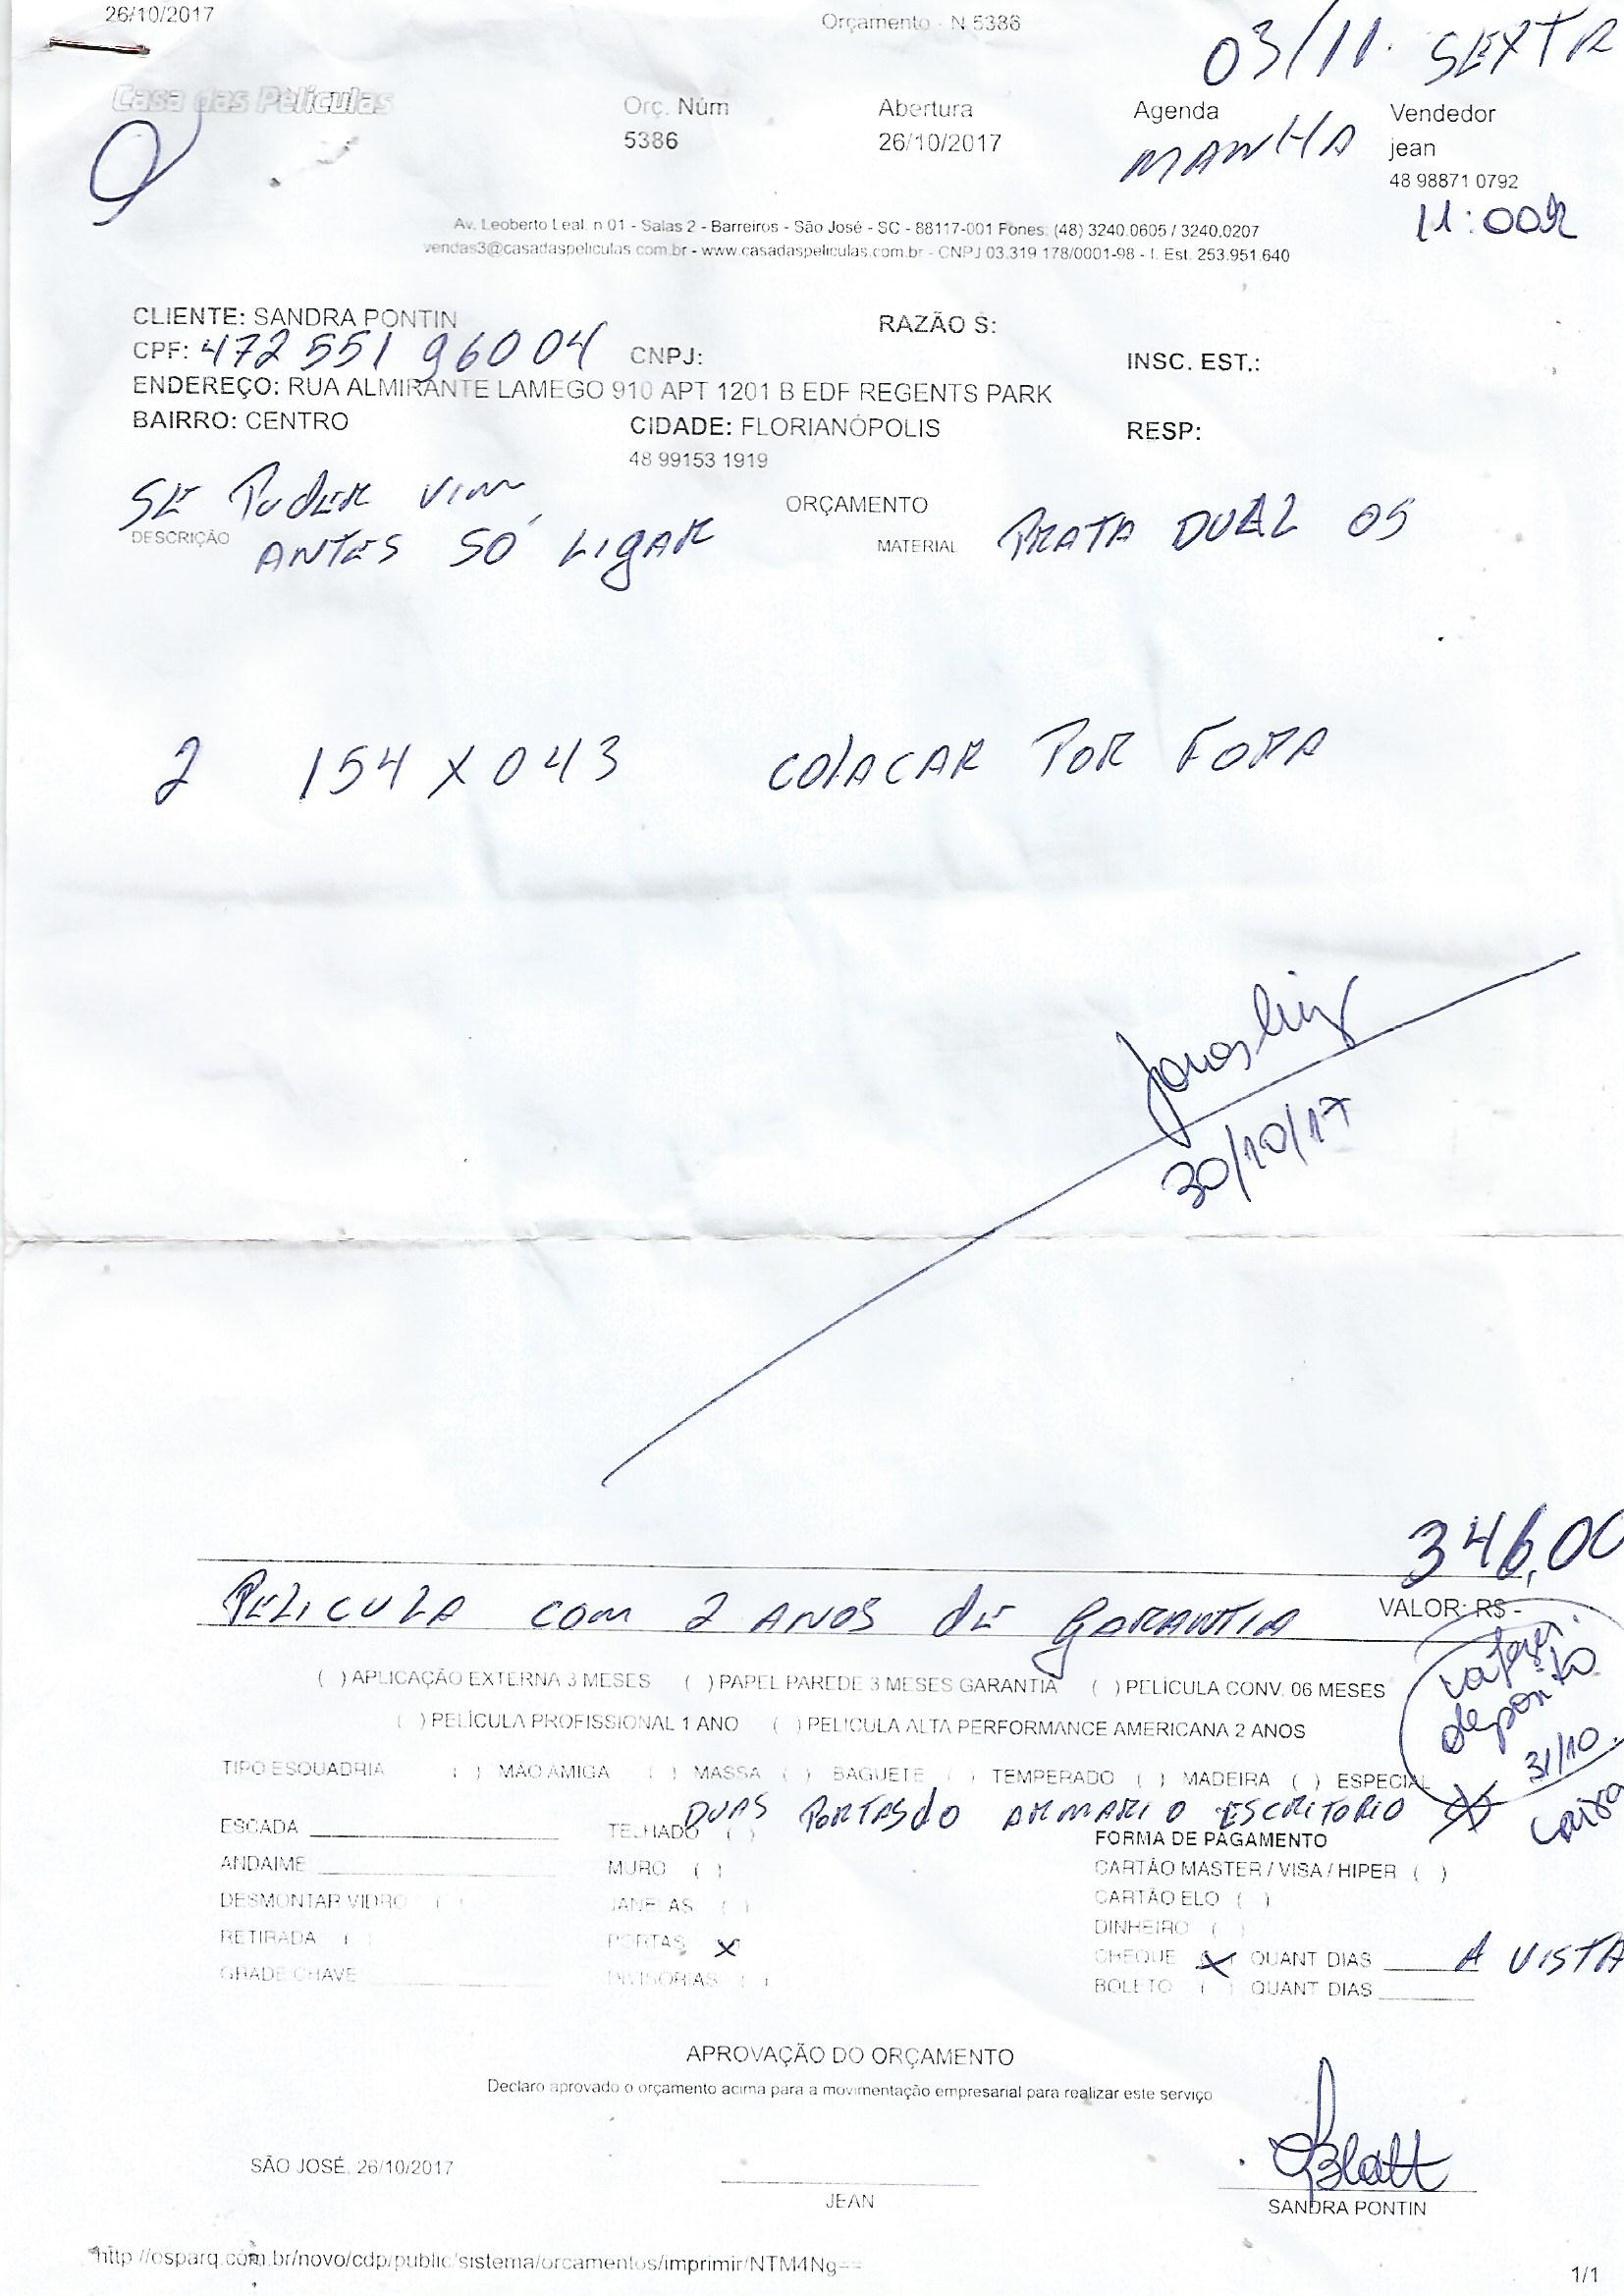 26/10/2017
Orçamento - N 5386
03/11. SEXTA
Casa das Películas
Orç. Núm
Abertura
Agenda
Vendedor
5386
26/10/2017
MANHA
jean
48 98871 0792
11:00
Av. Leoberto Leal. n 01 - Salas 2 - Barreiros - São José - SC - 88117-001 Fones: (48) 3240.0605 / 3240.0207
vendas3@casadaspeliculas.com.br - www.casadaspeliculas.com.br - CNPJ 03.319.178/0001-98 - I. Est. 253.951.640
CLIENTE: SANDRA PONTIN
RAZÃO S:
CPF: 472 551 960 04
CNPJ:
INSC. EST.:
ENDEREÇO: RUA ALMIRANTE LAMEGO 910 APT 1201 B EDF REGENTS PARK
BAIRRO: CENTRO
CIDADE: FLORIANÓPOLIS
RESP:
48 99153 1919
SE PUDER VIM
ORÇAMENTO
DESCRIÇÃO
ANTES SÓ LIGAR
MATERIAL
PRATA DUAL 05
2 154 X 043 COLACAR POR FORA
30/10/17
346,00
PELICULA COM 2 ANOS DE GARANTIA
VALOR: R$ -
( ) APLICAÇÃO EXTERNA 3 MESES ( ) PAPEL PAREDE 3 MESES GARANTIA ( ) PELÍCULA CONV. 06 MESES
( ) PELÍCULA PROFISSIONAL 1 ANO ( ) PELICULA ALTA PERFORMANCE AMERICANA 2 ANOS
deposito
31/10
TIPO ESQUADRIA ( ) MAO AMIGA ( ) MASSA ( ) BAGUETE ( ) TEMPERADO ( ) MADEIRA ( ) ESPECIAL
DUAS PORTAS DO ARMARIO ESCRITORIO
caixa
ESCADA
TELHADO ( )
FORMA DE PAGAMENTO
ANDAIME
MURO ( )
CARTÃO MASTER / VISA / HIPER ( )
DESMONTAR VIDRO ( )
JANELAS ( )
CARTÃO ELO ( )
RETIRADA ( )
PORTAS X
DINHEIRO ( )
CHEQUE X QUANT DIAS A VISTA
GRADE CHAVE
DIVISORIAS ( )
BOLETO ( ) QUANT DIAS
APROVAÇÃO DO ORÇAMENTO
Declaro aprovado o orçamento acima para a movimentação empresarial para realizar este serviço
SÃO JOSÉ, 26/10/2017
Blatt
JEAN
SANDRA PONTIN
http://osparq.com.br/novo/cdp/public/sistema/orcamentos/imprimir/NTM4Ng==
1/1